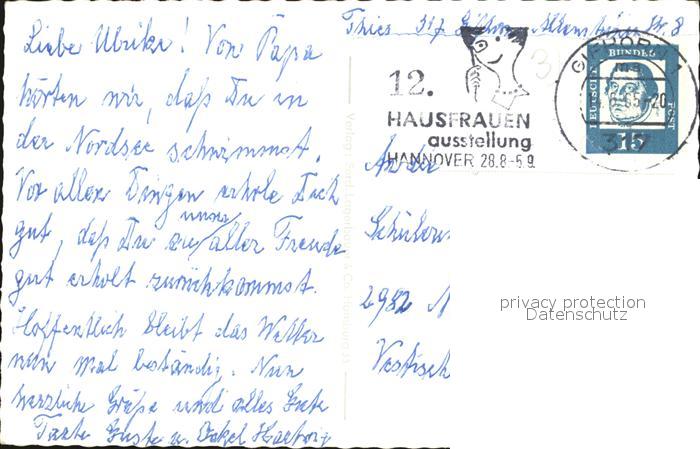 Thies 317 Gifhorn, Str. 8
Liebe Ulrike! Von Papa
hörten wir, daß Du in
der Nordsee schwimmst.
Vor allen Dingen erhole Dich
gut, daß Du zu unser aller Freude
gut erholt zurückkommst.
Hoffentlich bleibt das Wetter
nun mal beständig. Nun
herzliche Grüße und alles Gute
Tante Guste u. Onkel Hartwig
12.
HAUSFRAUEN
ausstellung
HANNOVER 28.8-5.9.
GIFHORN 1
DEUTSCHE BUNDESPOST
15
317
An die
Schülerin
2982
privacy protection
Datenschutz